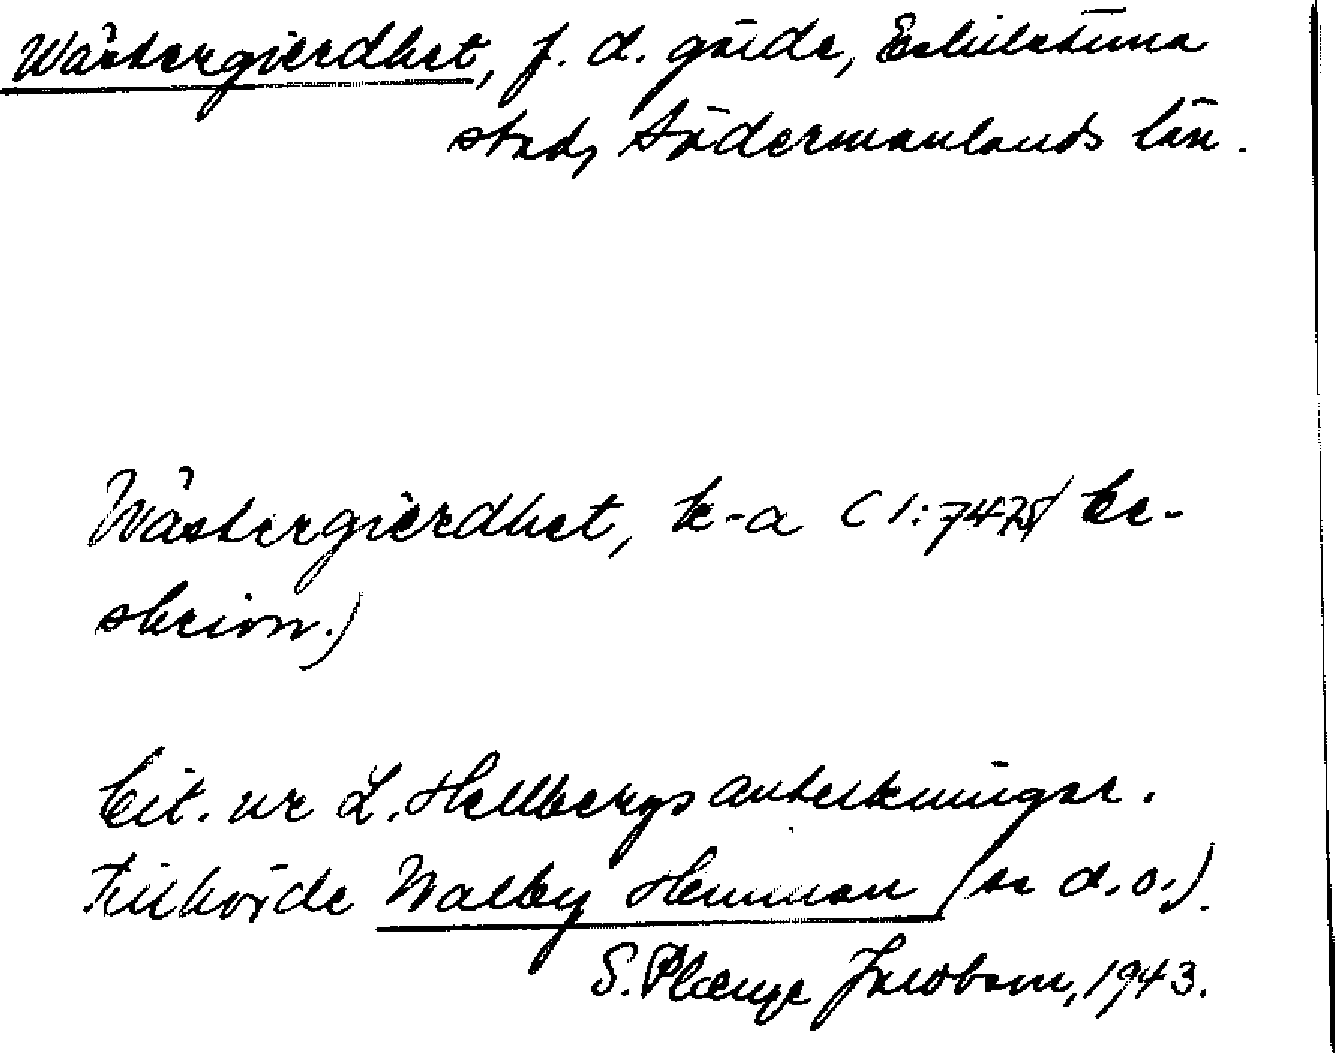 Wästergierdhet, f. d. gärde, Eskilstuna
stad, Södermanlands län.
Wästergierdhet, k-a (1:7475) be-
skrivn.)
Cit. ur L. Hellbergs anteckningar.
Tillhörde Walby Hemman (se d.o.).
S. Plænge Jacobson, 1943.